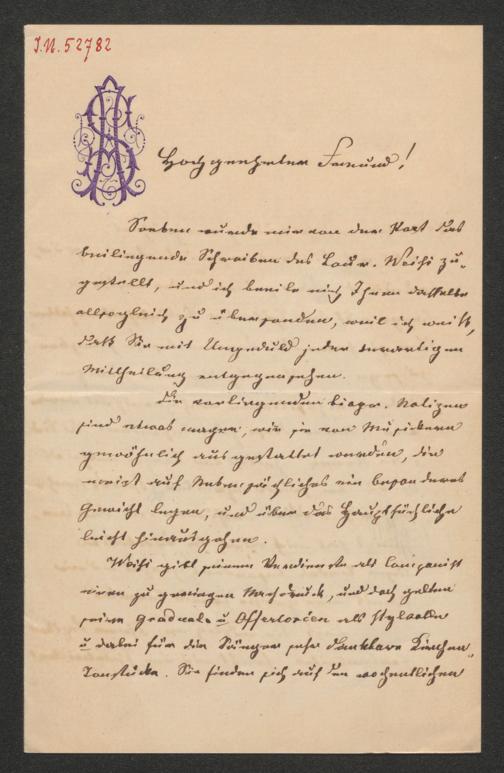 I.N. 52782
Hochgeehrter Freund!
Soeben wurde mir von der Post das
beiliegende Schreiben des Laur. Weiß zu-
gestellt, und ich beeile mich Ihnen dasselbe
allsogleich zu übersenden, weil ich weiß,
daß Sie mit Ungeduld jeder derartigen
Mittheilung entgegensehen.
Die vorliegenden biogr. Notizen
sind etwas mager, wie sie von Musikern
gewöhnlich ausgestattet werden, die
meist auf Nebensächliches ein besonderes
Gewicht legen, und über das Hauptsächliche
leicht hinausgehen.
Weiß gibt seinem Verdienste als Componist
einen zu geringen Nachdruck, und doch gelten
seine Graduale u Offertorien als stylvolle
u dabei für die Sänger sehr dankbare Kirchen-
Tonstücke. Sie finden sich auf den wochentlichen